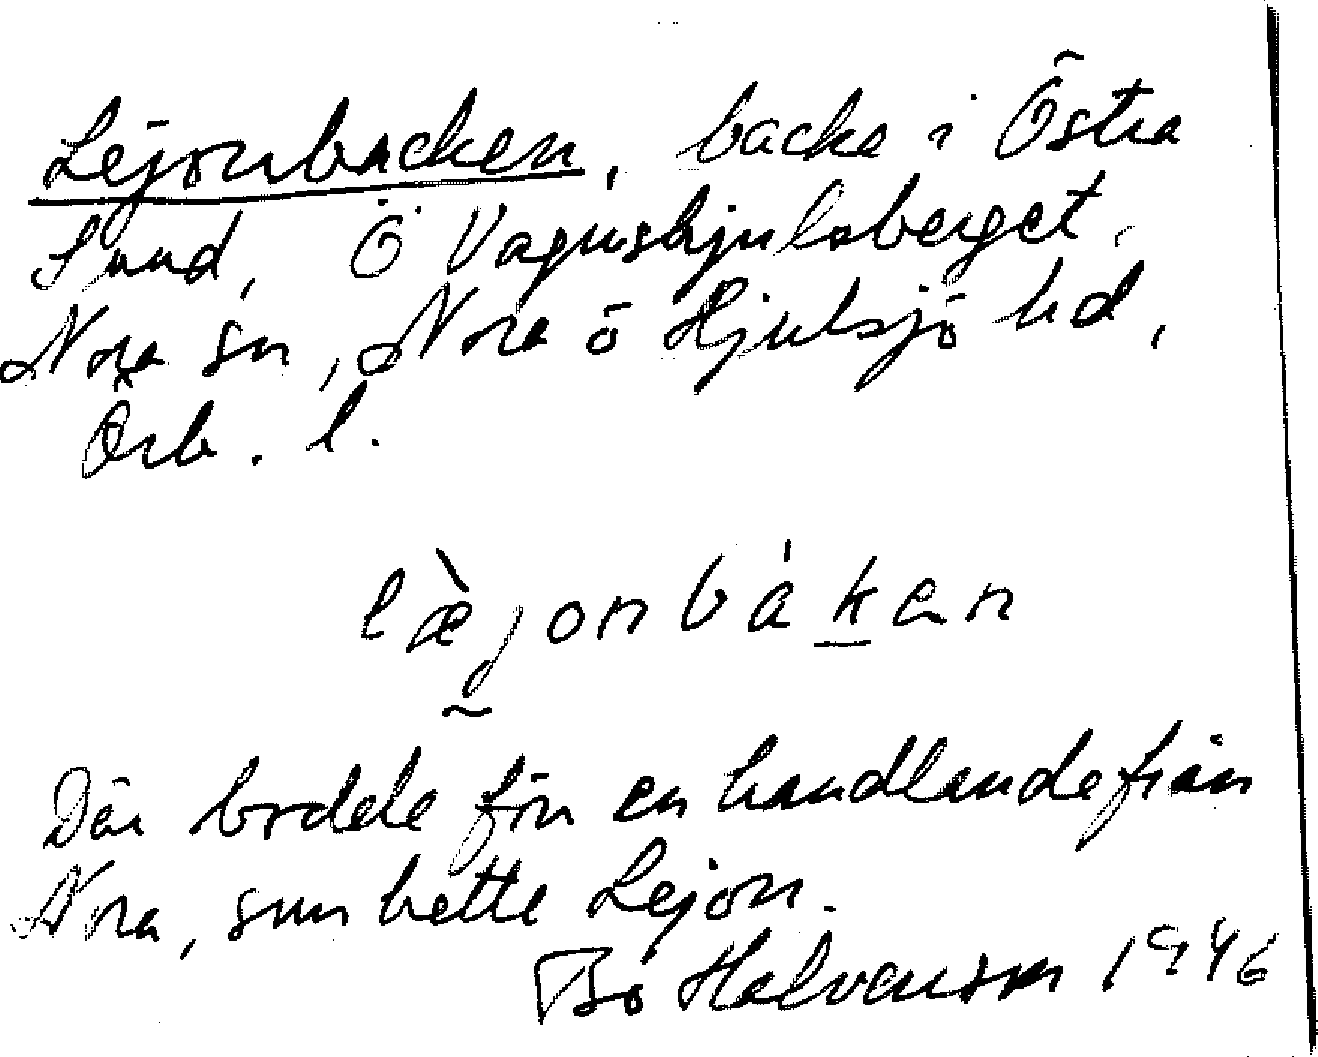 Lejonbacken, backe i Östra
Sund, Ö Vagnshjulsberget,
Nora sn, Nora o Hjulsjö hd,
Örb. l.
læ̀jonbákan
Där bodde förr en handlande från
Nora, som hette Lejon.
Bo Halvarson 1946